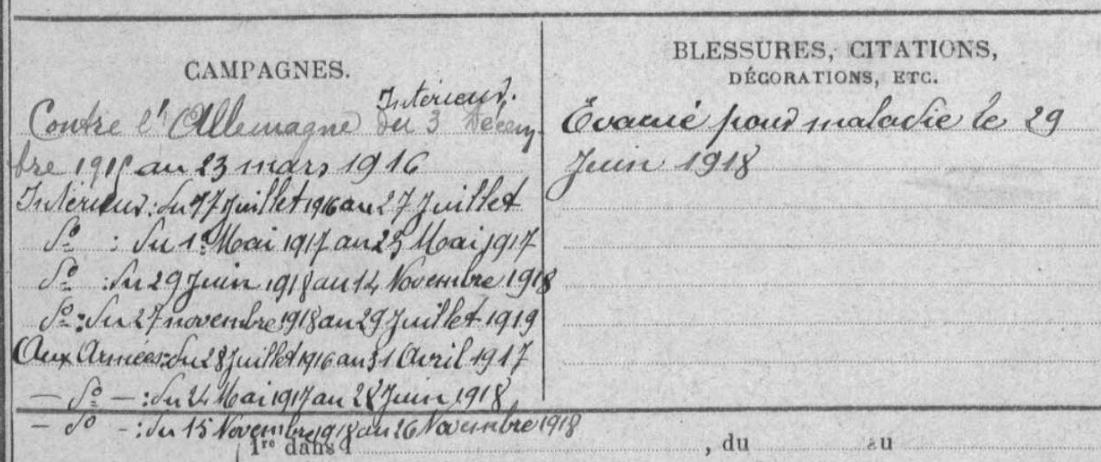 CAMPAGNES.
Intérieur.
Contre l'Allemagne du 3 Décem-
bre 1915 au 23 mars 1916
Intérieur: du 17 Juillet 1916 au 27 Juillet
do : du 1er Mai 1917 au 23 Mai 1917
do : du 29 Juin 1918 au 14 Novembre 1918
do : du 27 novembre 1918 au 29 Juillet 1919
Aux Armées: du 28 Juillet 1916 au 31 Avril 1917
— do — : du 24 Mai 1917 au 28 Juin 1918
— do — : du 15 Novembre 1918 au 26 Novembre 1918
BLESSURES, CITATIONS,
DÉCORATIONS, ETC.
Évacué pour maladie le 29
Juin 1918
1re dans l , du au